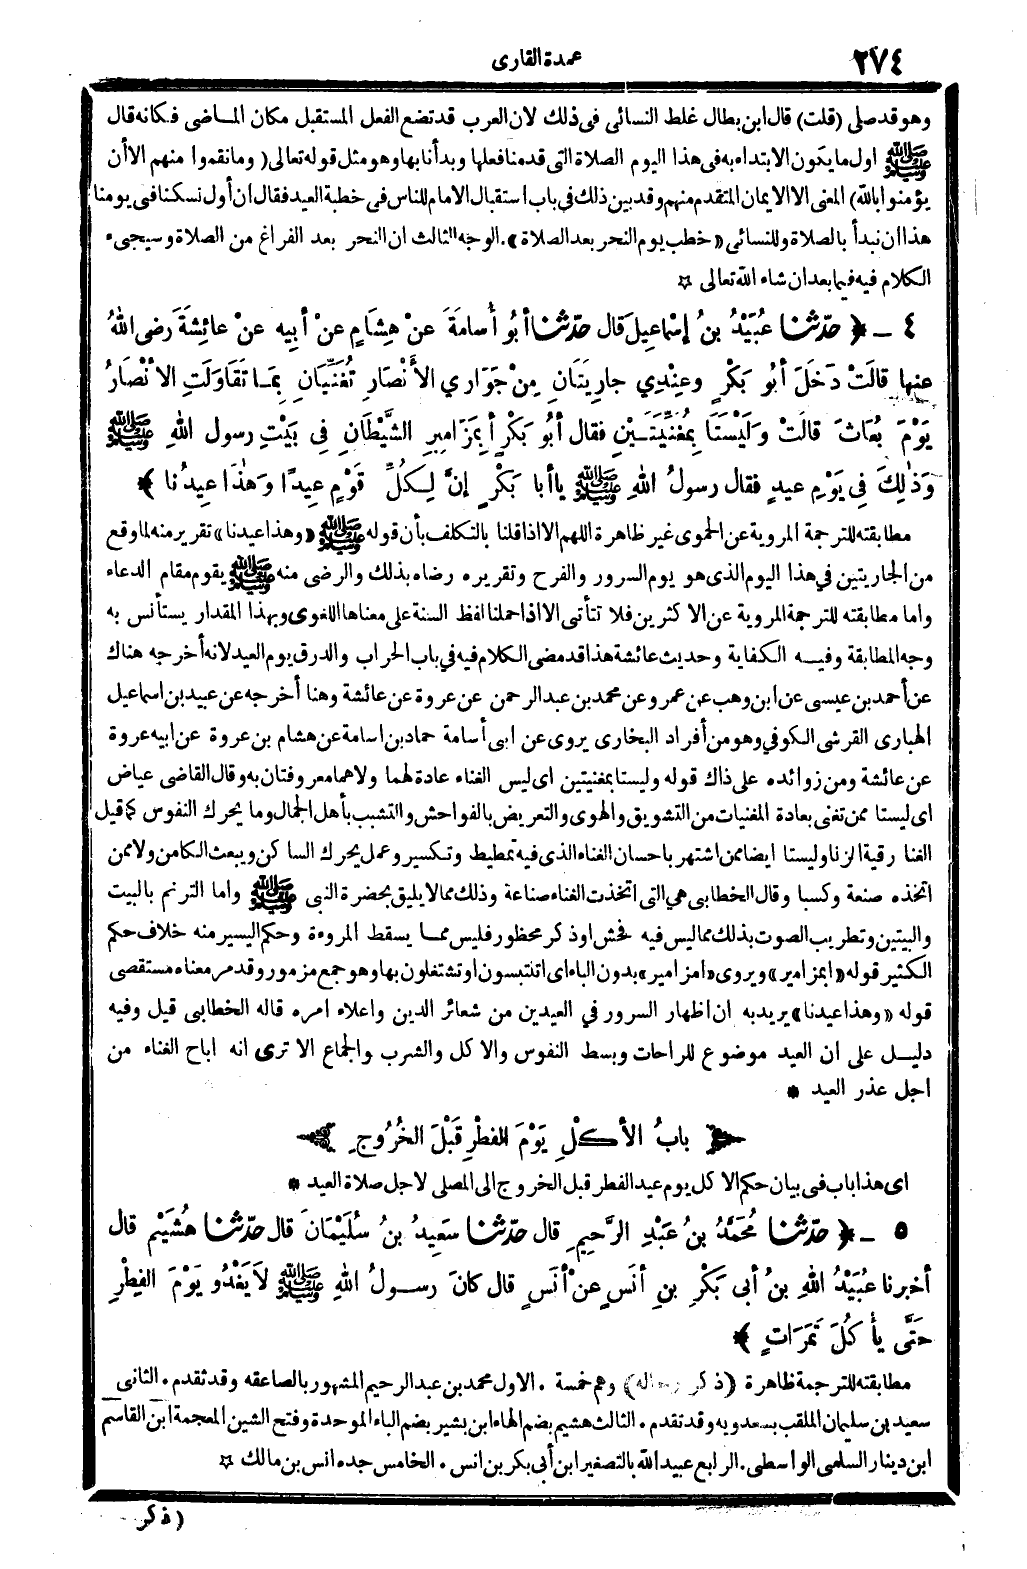 ٢٧٤
عمدة القارى
وهو قد صلى (قلت) قال ابن بطال غلط النسائى فى ذلك لان العرب قد تضع الفعل المستقبل مكان الماضى فكانه قال
ﷺ اول ما يكون الابتداء به فى هذا اليوم الصلاة التى قدمنا فعلها وبدأنا بها وهو مثل قوله تعالى (وما نقموا منهم الا أن
يؤمنوا بالله) المعنى الا الايمان المتقدم منهم وقد بين ذلك في باب استقبال الامام للناس فى خطبة العيد فقال ان أول نسكنا فى يومنا
هذا ان نبدأ بالصلاة وللنسائى «خطب يوم النحر بعد الصلاة». الوجه الثالث ان النحر بعد الفراغ من الصلاة وسيجىء
الكلام فيه فيما بعد ان شاء الله تعالى ☆
٤ ـ ﴿ حدّثنا عُبَيْدُ بنُ إسْماعِيلَ قال حدّثنا أبُو أُسامَةَ عنْ هِشَامٍ عنْ أبِيهِ عنْ عائِشَةَ رضى اللهُ
عنها قالَتْ دَخَلَ أبُو بَكْرٍ وعِنْدِي جارِيَتَانِ مِنْ جَوَارِي الأَنْصَارِ تُغَنِّيَانِ بِمَا تَقَاوَلَتِ الانْصَارُ
يَوْمَ بُعَاثَ قالَتْ وَلَيْسَتَا بِمُغَنِّيَتَيْنِ فقال أبُو بَكْرٍ أبِمَزَامِيرِ الشَّيْطَانِ فِى بَيْتِ رسولِ اللهِ ﷺ
وَذٰلِكَ فِى يَوْمِ عيدٍ فقال رسولُ اللهِ ﷺ يا أبا بَكْرٍ إنَّ لِكُلِّ قَوْمٍ عِيدًا وَهٰذَا عِيدُنا ﴾
مطابقته للترجمة المروية عن الحموى غير ظاهرة اللهم الا اذا قلنا بالتكلف بأن قوله ﷺ «وهذا عيدنا» تقرير منه لما وقع
من الجاريتين في هذا اليوم الذى هو يوم السرور والفرح وتقريره رضاه بذلك والرضى منه ﷺ يقوم مقام الدعاء
واما مطابقته للترجمة المروية عن الاكثرين فلا تتأتى الا اذا حملنا لفظ السنة على معناها اللغوى وبهذا المقدار يستأنس به
وجه المطابقة وفيه الكفاية وحديث عائشة هذا قد مضى الكلام فيه في باب الحراب والدرق يوم العيد لانه أخرجه هناك
عن أحمد بن عيسى عن ابن وهب عن عمرو عن محمد بن عبد الرحمن عن عروة عن عائشة وهنا أخرجه عن عبيد بن اسماعيل
الهبارى القرشى الكوفي وهو من أفراد البخارى يروى عن ابى أسامة حماد بن اسامة عن هشام بن عروة عن ابيه عروة
عن عائشة ومن زوائده على ذاك قوله وليستا بمغنيتين اى ليس الغناء عادة لهما ولا هما معروفتان به وقال القاضى عياض
اى ليستا ممن تغنى بعادة المغنيات من التشويق والهوى والتعريض بالفواحش والتشبب بأهل الجمال وما يحرك النفوس كما قيل
الغنا رقية الزنا وليستا ايضا ممن اشتهر باحسان الغناء الذى فيه تمطيط وتكسير وعمل يحرك الساكن ويبعث الكامن ولا ممن
اتخذه صنعة وكسبا وقال الخطابى هي التى اتخذت الغناء صناعة وذلك مما لا يليق بحضرة النبى ﷺ واما الترنم بالبيت
والبيتين وتطريب الصوت بذلك مما ليس فيه فحش اوذكر محظور فليس مما يسقط المروءة وحكم اليسير منه خلاف حكم
الكثير قوله «ابمزامير» ويروى «امزامير» بدون الباء اى اتلتبسون او تشتغلون بها وهو جمع مزمور وقد مر معناه مستقصى
قوله «وهذا عيدنا» يريد به ان اظهار السرور في العيدين من شعائر الدين واعلاء امره قاله الخطابى قيل وفيه
دليل على ان العيد موضوع للراحات وبسط النفوس والاكل والشرب والجماع الا ترى انه اباح الغناء من
اجل عذر العيد *
باب الأكْلِ يَوْمَ الفطْرِ قَبْلَ الخُرُوجِ
اى هذا باب فى بيان حكم الاكل يوم عيد الفطر قبل الخروج الى المصلى لاجل صلاة العيد *
٥ ـ ﴿ حدّثنا مُحَمَّدُ بنُ عَبْدِ الرَّحِيمِ قال حدّثنا سَعِيدُ بنُ سُلَيْمَانَ قال حدّثنا هُشَيْمٌ قال
أخبرنا عُبَيْدُ اللهِ بنُ أبى بَكْرِ بنِ أنَسٍ عنْ أنَسٍ قال كانَ رسولُ اللهِ ﷺ لاَ يَغْدُو يَوْمَ الفِطْرِ
حَتَّى يأكُلَ تَمَرَاتٍ ﴾
مطابقته للترجمة ظاهرة (ذكر رجاله) وهم خمسة. الاول محمد بن عبد الرحيم المشهور بالصاعقه وقد تقدم. الثانى
سعيد بن سليمان الملقب بسعدويه وقد تقدم. الثالث هشيم بضم الهاء ابن بشير بضم الباء الموحدة وفتح الشين المعجمة ابن القاسم
ابن دينار السلمى الواسطى. الرابع عبيد الله بالتصغير ابن أبى بكر بن انس. الخامس جده انس بن مالك ☆
(ذكر